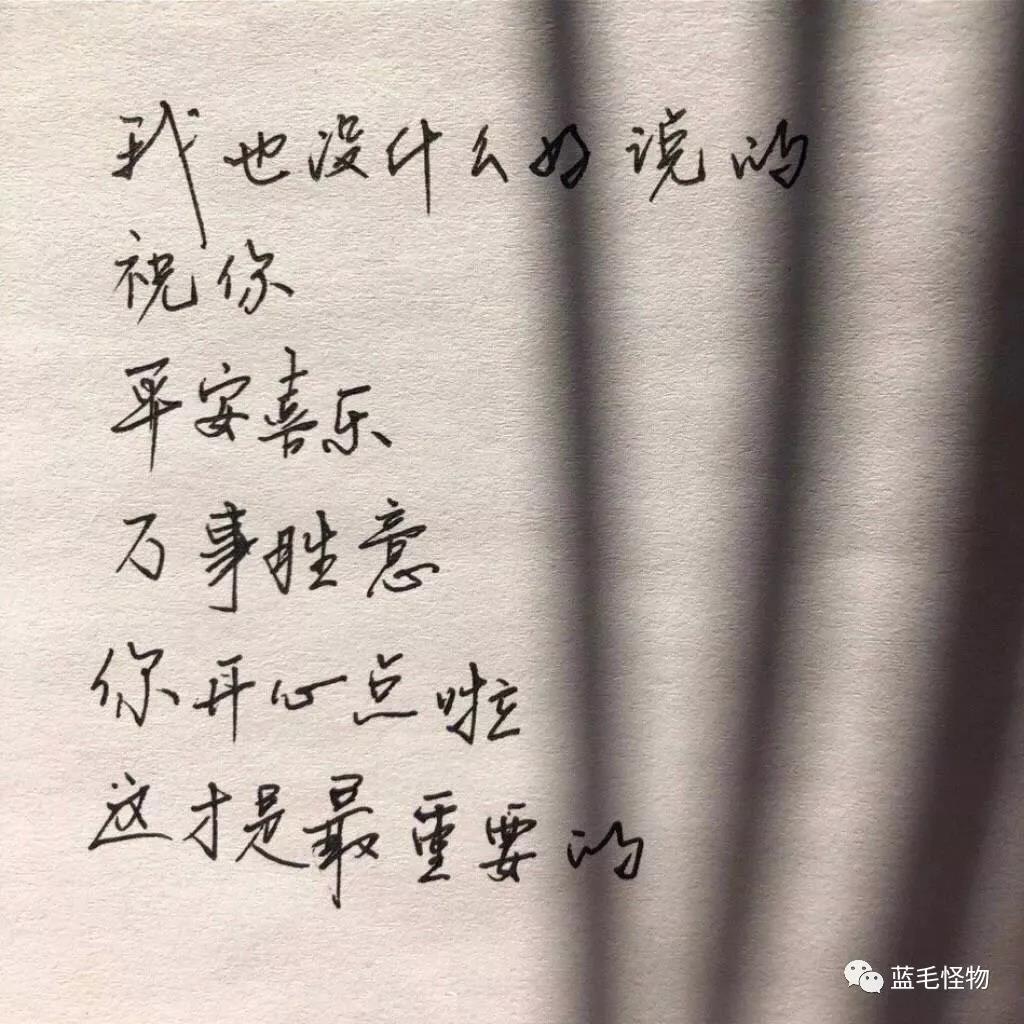 我也没什么好说的
祝你
平安喜乐
万事胜意
你开心点啦
这才是最重要的
蓝毛怪物